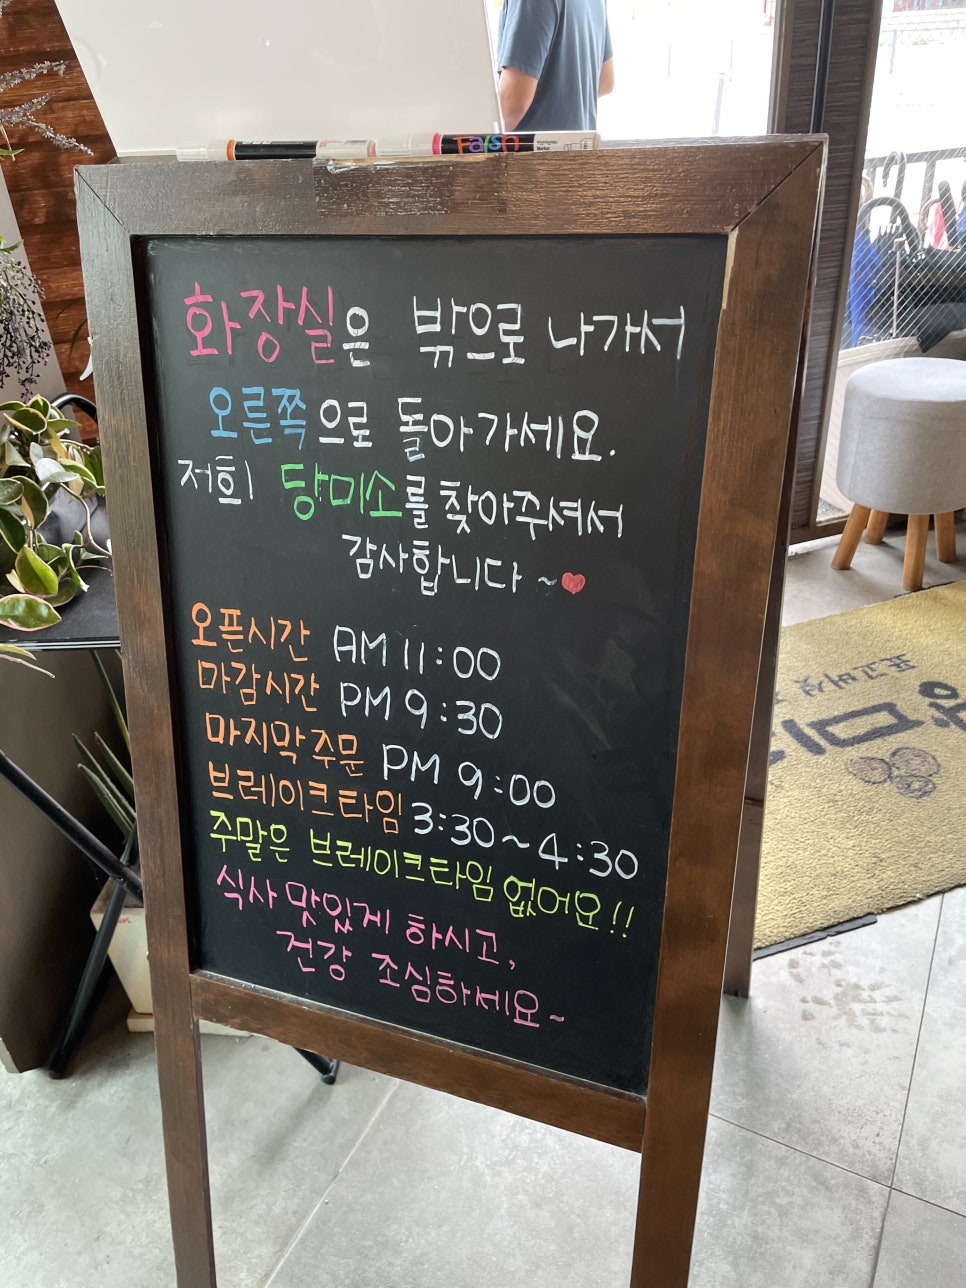 화장실은 밖으로 나가서
오른쪽으로 돌아가세요.
저희 당미소를 찾아주셔서
감사합니다 ~♥
오픈시간 AM 11:00
마감시간 PM 9:30
마지막주문 PM 9:00
브레이크타임 3:30~4:30
주말은 브레이크타임 없어요!!
식사 맛있게 하시고,
건강 조심하세요~